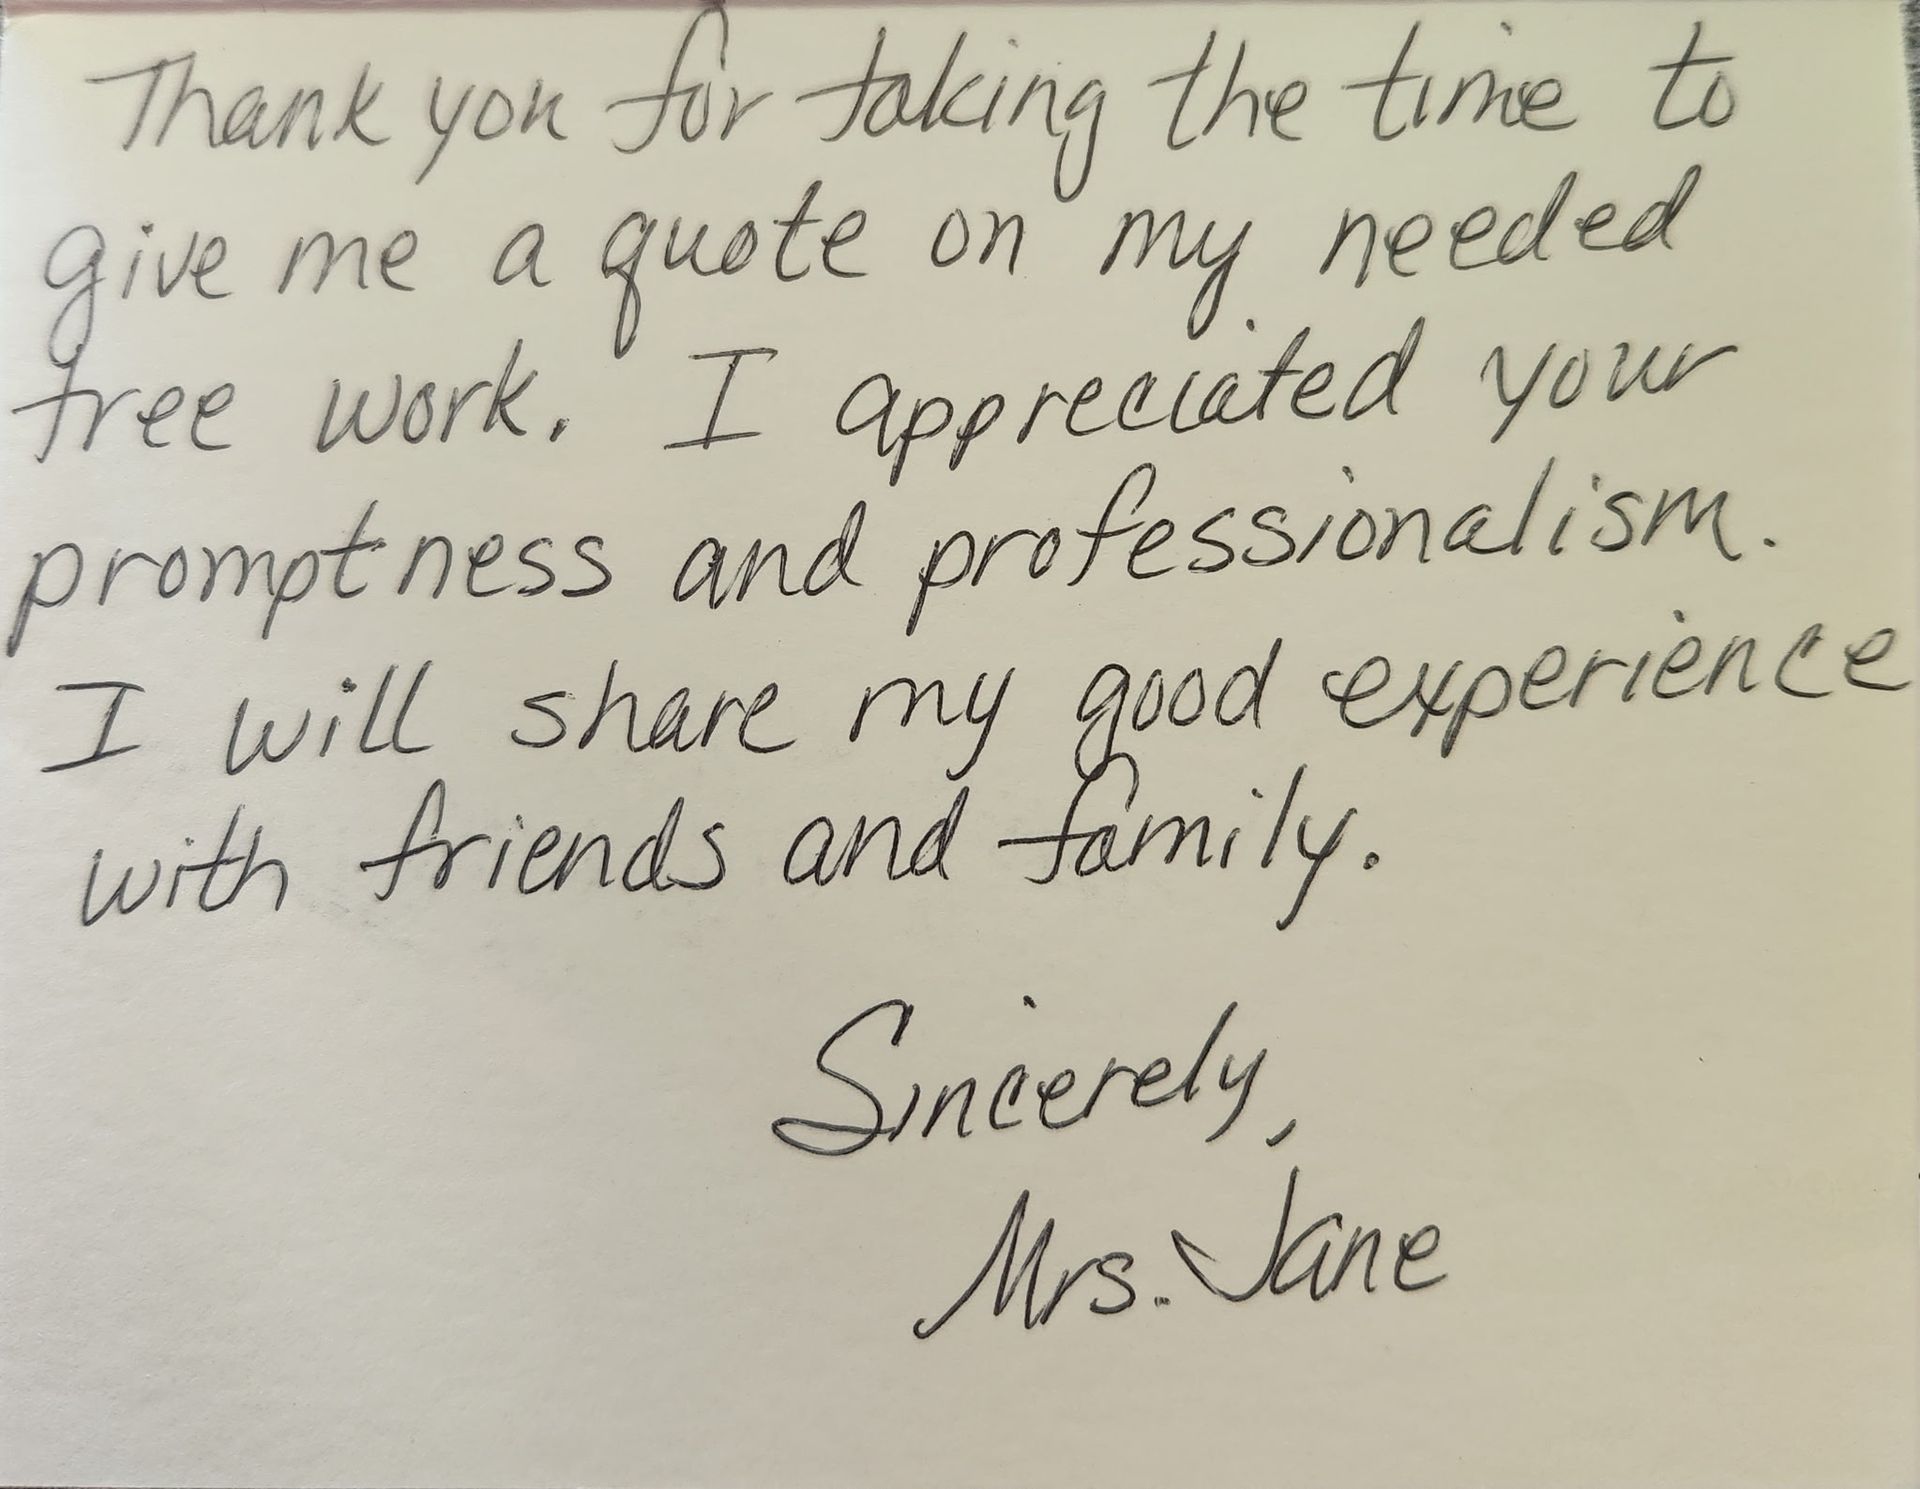 Thank you for taking the time to
give me a quote on my needed
tree work. I appreciated your
promptness and professionalism.
I will share my good experience
with friends and family.
Sincerely,
Mrs. Jane